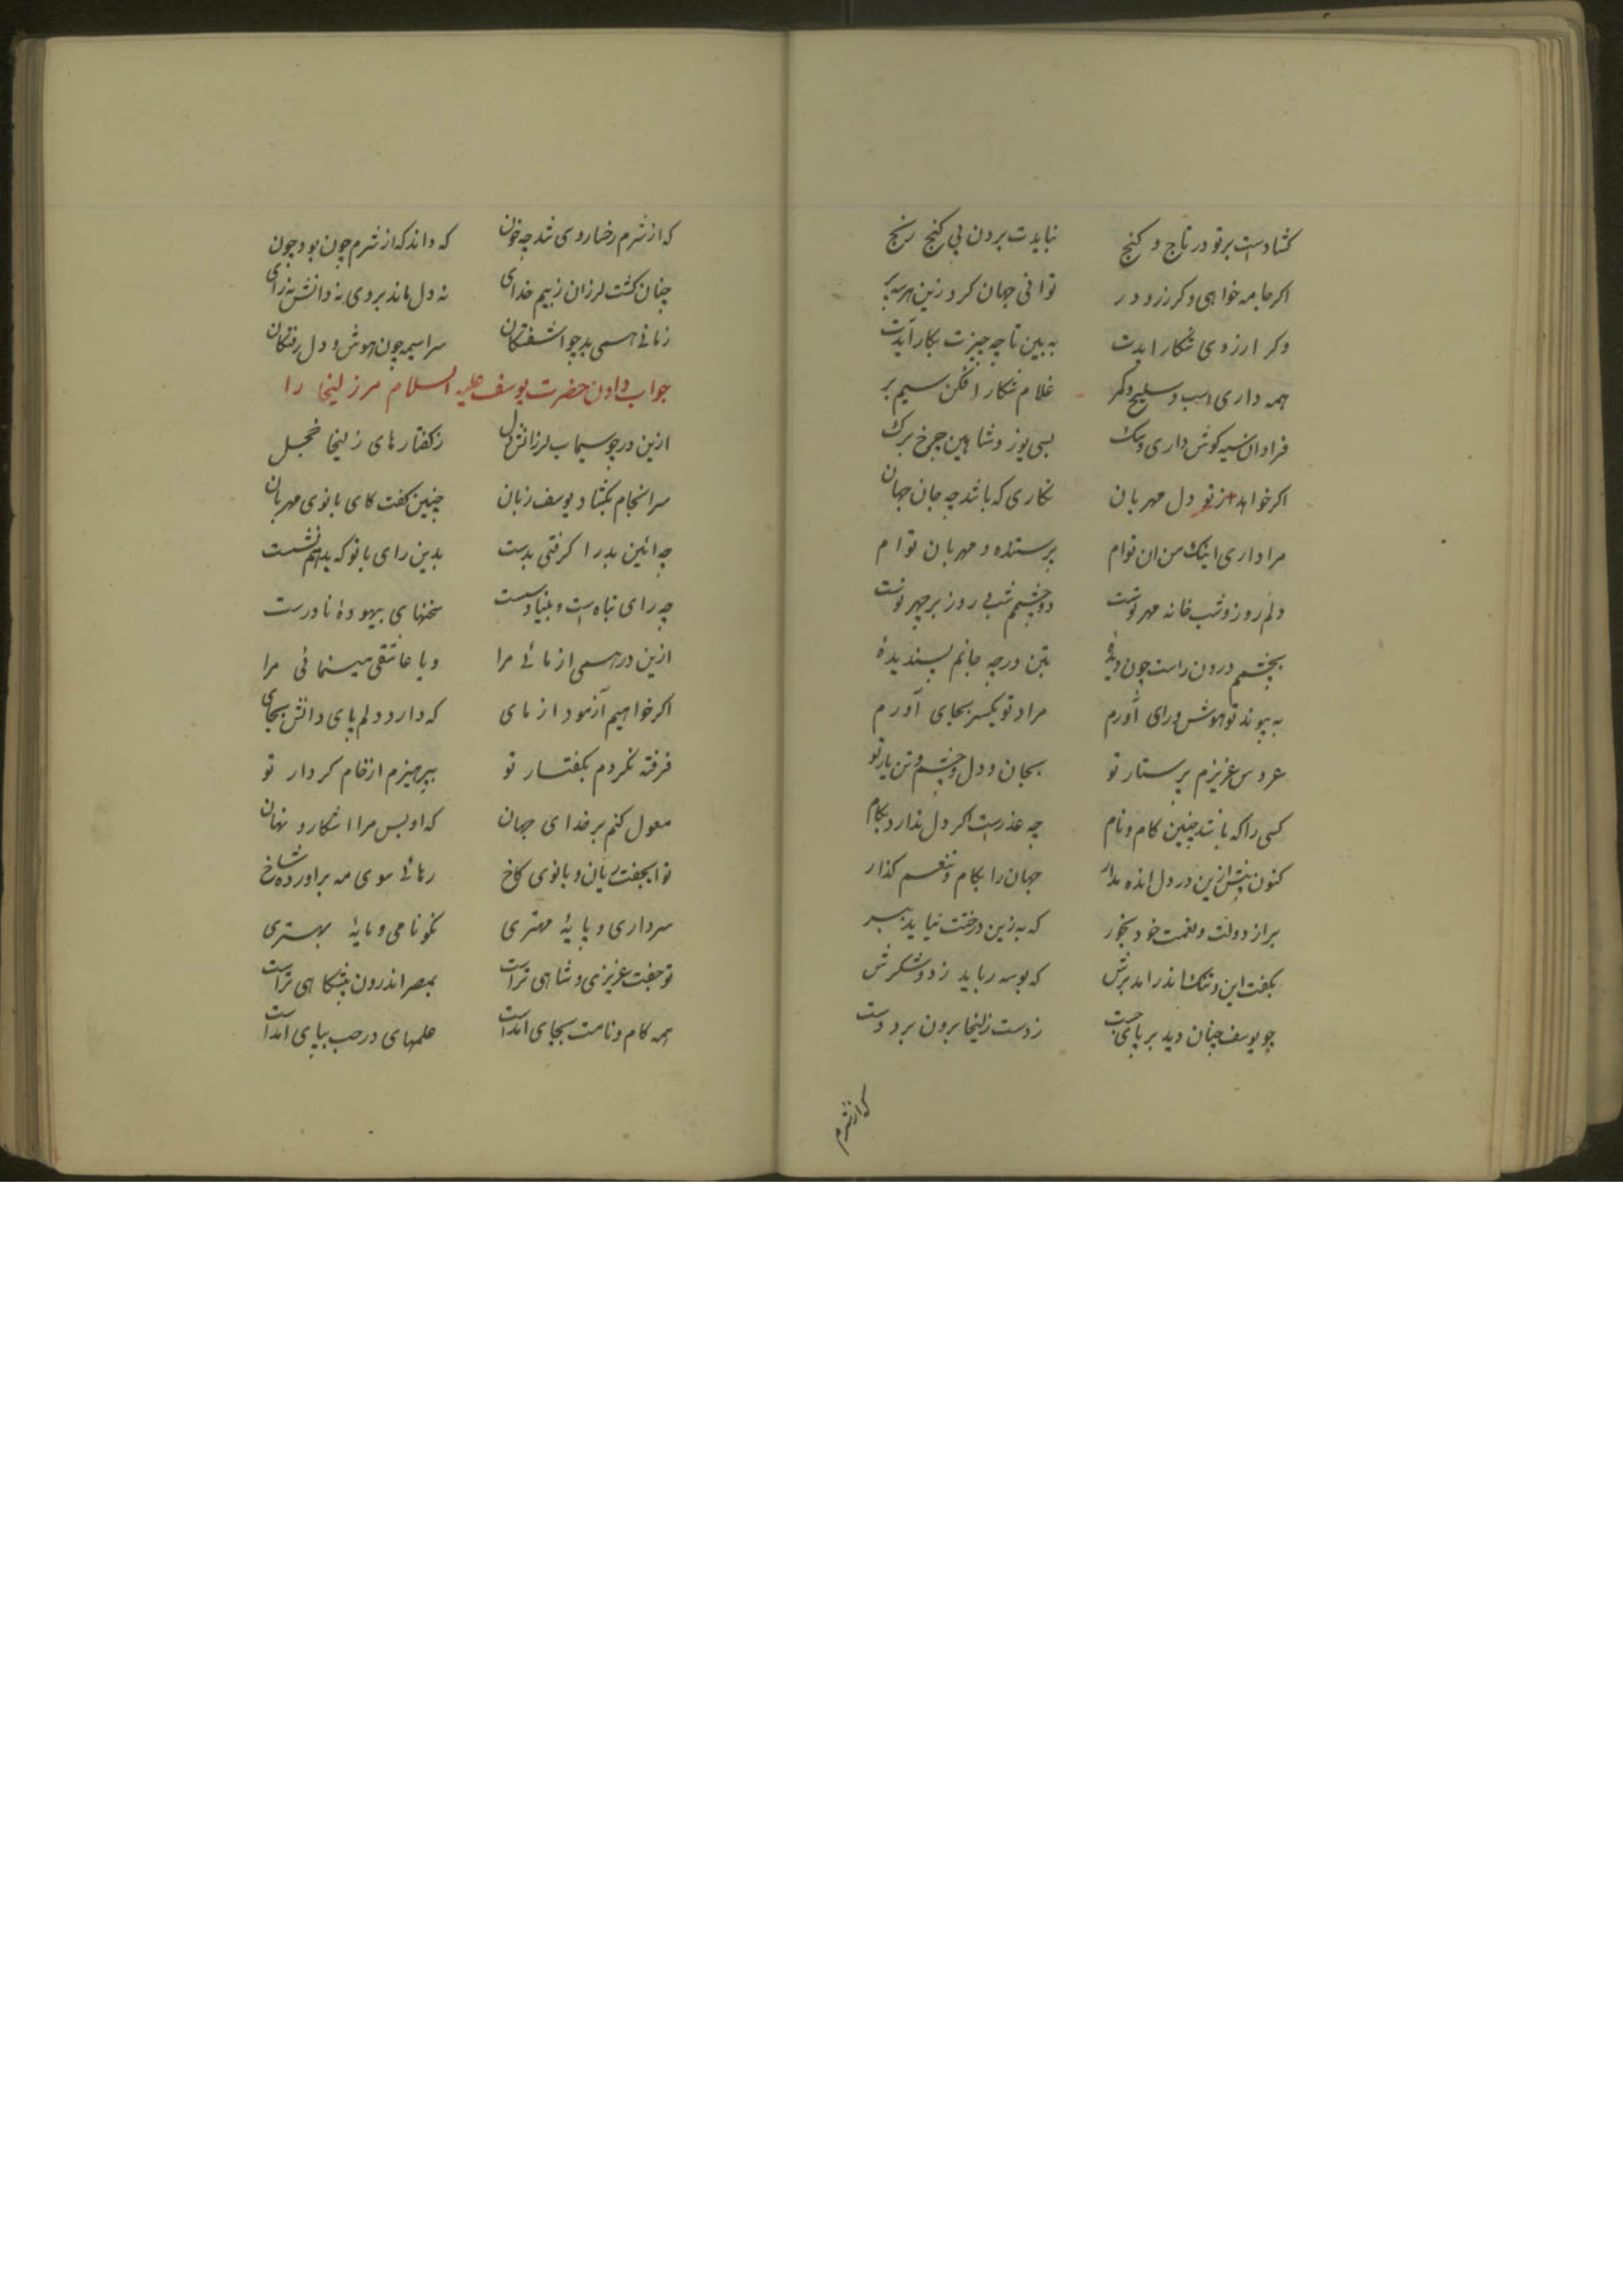 کشادست بر تو در تاج و کنج نبایدت بردن پی کنج رنج
اکر جامه خواهی وکر زر و در توانی جهان کرد زین هر سه پر
وکر ارزوی شکار ایدت به بین تا چه چیزت بکار آیدت
همه داری اسب و سلیح و کمر غلام شکار افکن سیم بر
فراوان سیه کوش داری و سک بسی یوز و شاهین چرخ
اکر خواهد از تو دل مهربان نکاری که باشد چه جان جهان
مرا داری اینک من ان توام پرستنده و مهربان توام
دلم روز و شب خانه مهر توست دو چشمم شب و روز بر چهر توست
بچشمم درون راست چون دیدهٔ بتن در چه جانم پسندیدهٔ
به پیوند تو هوش و رای آورم مراد تو یکسر بجای آورم
عروس عزیزم پرستار تو بجان و دل و چشم و تن یار تو
کسی را که باشد چنین کام و نام چه عذرست اکر دل ندارد بکام
کنون بیش ازین در دل انده مدار جهان را بکام و تنعم کذار
بر از دولت و نعمت خود بخور که به زین درختت نیاید ببر
بکفت این و تنک اندر امد برش که بوسه رباید ز دو شکرش
چو یوسف چنان دید بر پای جست ز دست زلیخا برون برد دست
که از شرم
که از شرم رخسار وی شد چه خون که داند که از شرم چون بود چون
چنان کشت لرزان ز بیم خدای نه دل ماند بر وی نه دانش نه رای
زمانی همی بد چو اشفتکان سراسیمه چون هوش و دل رفتکان
جواب دادن حضرت یوسف علیه السلام مر زلیخا را
ازین در چو سیماب لرزانش دل ز کفتارهای زلیخا خجل
سرانجام بکشاد یوسف زبان چنین کفت کای بانوی مهربان
چه ائین بد را کرفتی بدست بدین رای با تو که بد هم نشست
چه رای تباه است و بنیاد سست سخنهای بیهودهٔ نادرست
ازین در همی ازمائی مرا و یا عاشقی مینمائی مرا
اکر خواهیم آزمود ازمای که دارد دلم پای دانش بجای
فرفته نکردم بکفتار تو بپرهیزم از خام کردار تو
معول کنم بر خدای جهان که او بس مرا اشکار و نهان
تو ایجفت ریان و بانوی کاخ رهائی سوی مه براورده شاخ
سرداری و پایهٔ مهتری نکونامی و مایهٔ بهتری
تو جفت عزیزی و شاهی تراست بمصر اندرون پیشکاهی تراست
همه کام و نامت بجای امدست علمهای در جب بپای امدست